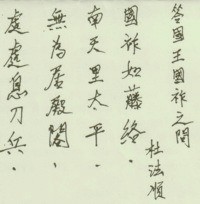 答國王國祚之問
杜法順
國祚如藤絡。
南天里太平。
無為居殿閣。
處處息刀兵。